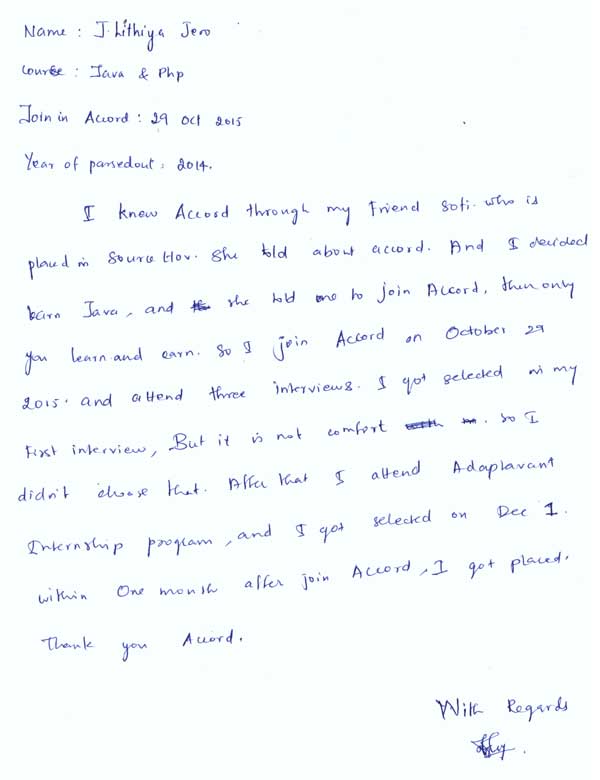 Name : J. Lithiya Jero
Course : Java & Php
Join in Accord : 29 Oct 2015
Year of passedout : 2014.
I knew Accord through my Friend Sofi. who is
placed in Source Hov. She told about accord. And I decided
learn Java, and she told me to join Accord, then only
you learn and earn. So I join Accord on October 29
2015. and attend three interviews. I got selected in my
First interview, But it is not comfort so I
didn't choose that. After that I attend Adaplavant
Internship program, and I got selected on Dec 1.
within One month after join Accord, I got placed.
Thank you Accord.
With Regards